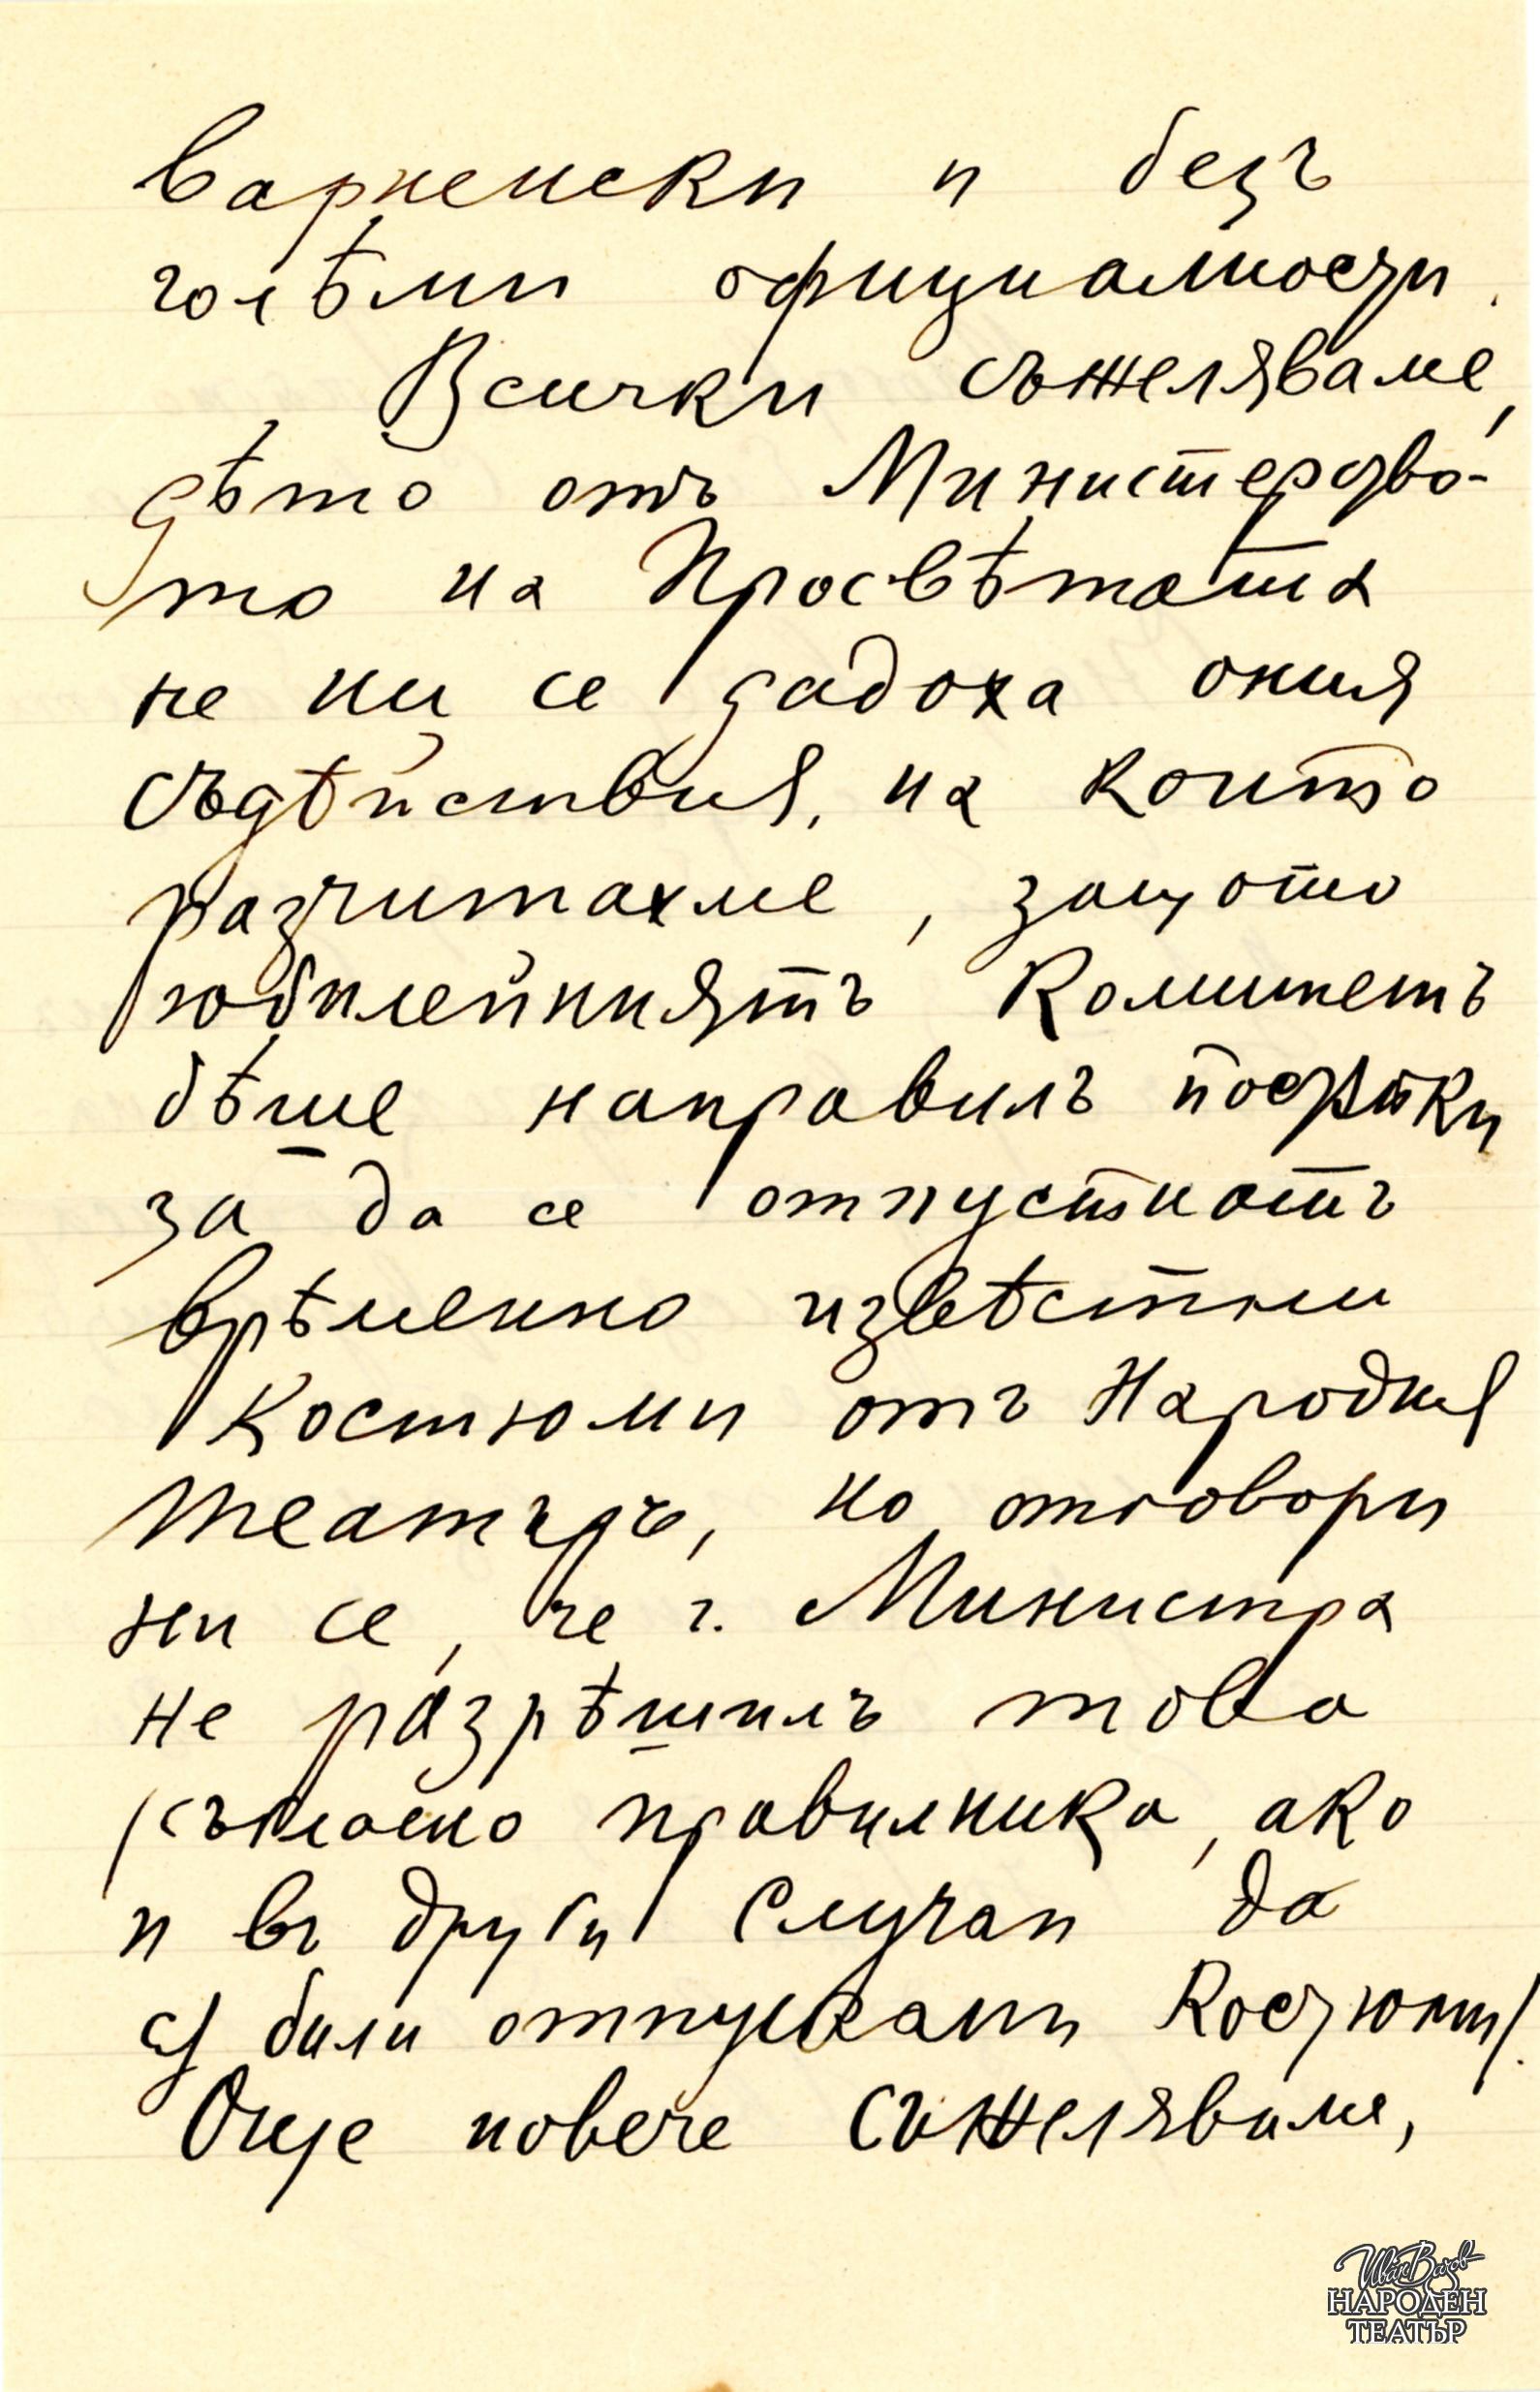 Варненски и безъ
голѣми официалности.
Всички съжеляваме,
дѣто отъ Министерство-
то на Просвѣтата
не ни се дадоха ония
съдѣйствия, на които
разчитахме, защото
юбилейниятъ Комитетъ
бѣше направилъ постѫпки
за да се отпуснатъ
врѣменно извѣстни
костюми отъ Народния
Театъръ, но отговори
ни се, че г. Министра
не разрѣшилъ това
(съгласно правилника, ако
и въ други случаи да
сѫ били отпускани костюми).
Още повече съжеляваме,
Иван Вазов
НАРОДЕН
ТЕАТЪР